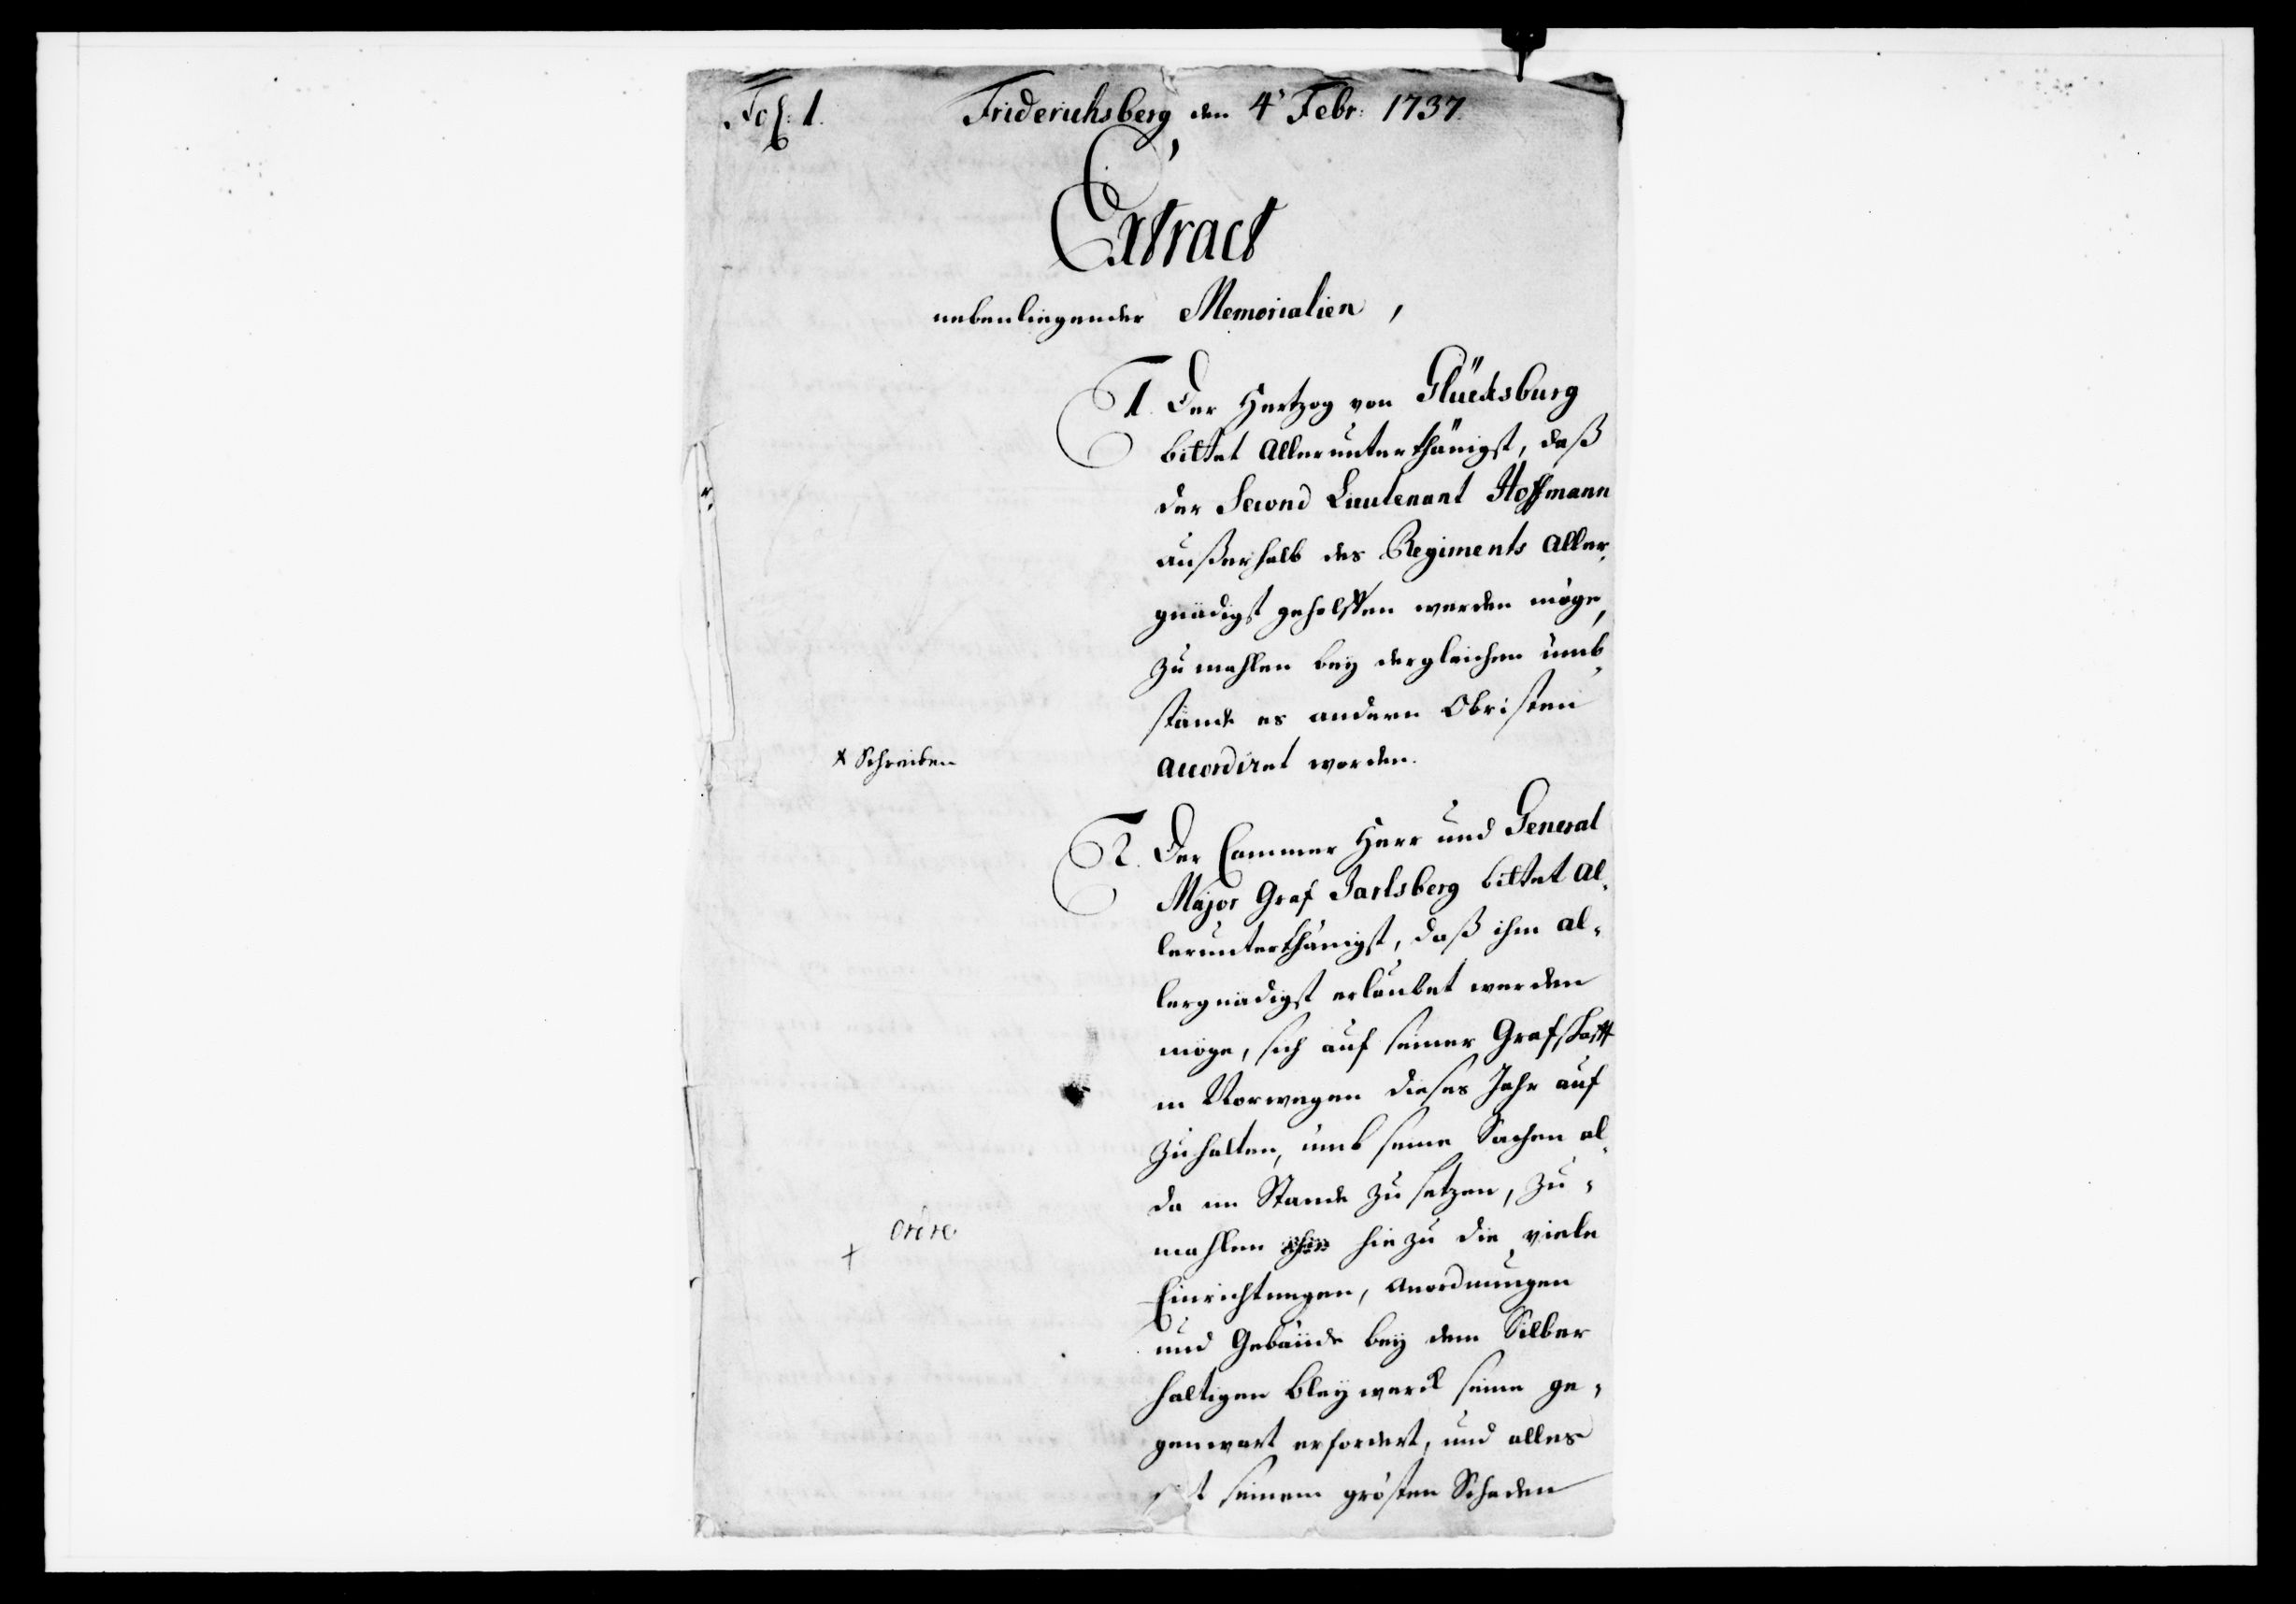 Fol: 1. Friderichsberg den 4t Febr: 1737.
Extract
nebenliegender Memorialien,
1. Der Hertzog von Glücksburg
bittet allerunterthänigst, daß
der Second Lieutenant Hoffmann
außerhalb des Regiments aller-
gnädigst geholffen werden möge,
zumahlen bey dergleichen umb-
stände es andern Obristen
accordiret worden.
x Schreiben
2. Der Cammer Herr und General
Major Graf Jarlsberg bittet al-
lerunterthänigst, daß ihm al-
lergnädigst erlaubet werden
möge, sich auf seiner Grafschafft
in Norwegen dieses Jahr auf
zuhalten, umb seine Sachen al-
da im Stande zu setzen, zu-
mahlen hiezu die viele
Einrichtungen, Anordnungen
und Gebäude bey dem Silber
haltigen Bleywerck seine ge-
genwart erfordert, und alles
seinem grösten Schaden
ordre
+